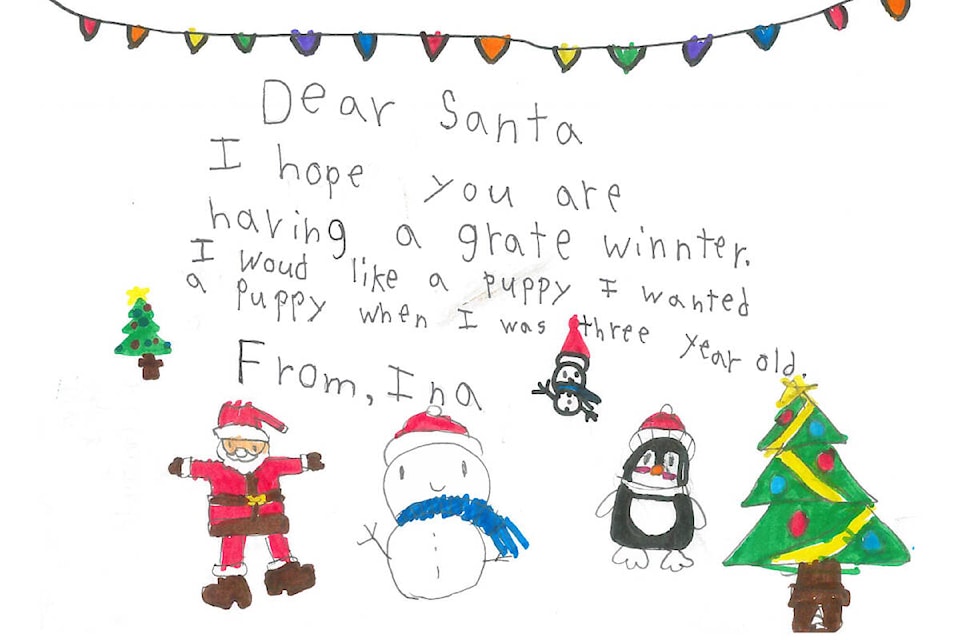 Dear Santa
I hope you are
having a grate winnter.
I woud like a puppy I wanted
a puppy when I was three year old.
From, Ina